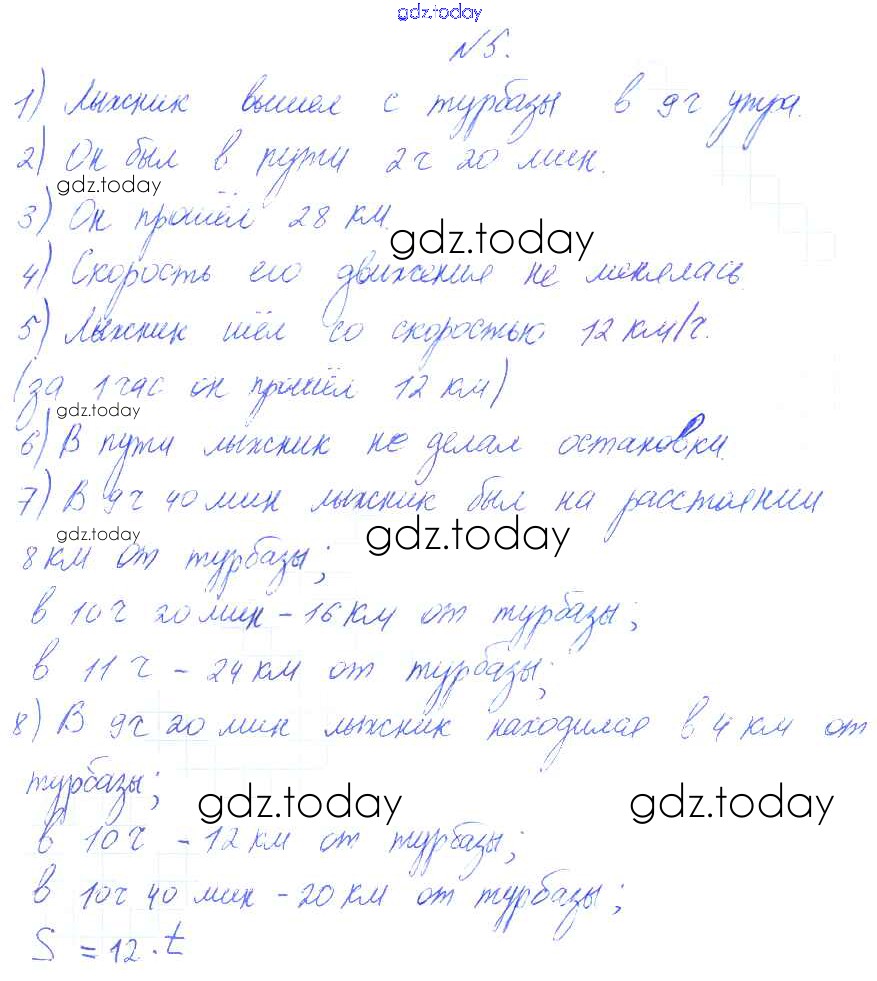 gdz.today
№5.
1) Лыжник вышел с турбазы в 9ч утра.
2) Он был в пути 2ч 20 мин.
gdz.today
3) Он прошёл 28 км.
gdz.today
4) Скорость его движения не менялась.
5) Лыжник шёл со скоростью 12 км/ч.
(за 1 час он прошёл 12 км)
gdz.today
6) В пути лыжник не делал остановки.
7) В 9ч 40 мин лыжник был на расстоянии
gdz.today
gdz.today
8 км от турбазы;
в 10ч 20 мин - 16 км от турбазы;
в 11 ч - 24 км от турбазы;
8) В 9ч 20 мин лыжник находился в 4 км от
турбазы;
gdz.today
gdz.today
в 10ч - 12 км от турбазы;
в 10ч 40 мин - 20 км от турбазы;
S = 12 · t